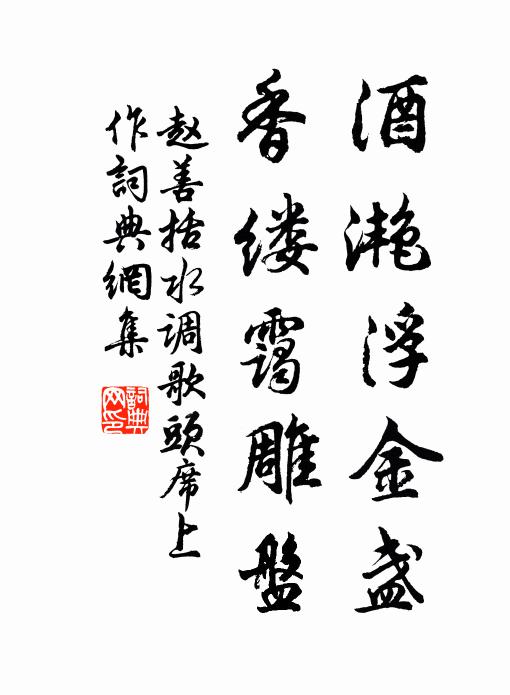 酒滟浮金盏
香缕霭雕盤
赵善括水调歌頭席上
作詞典網集
詞典
网印